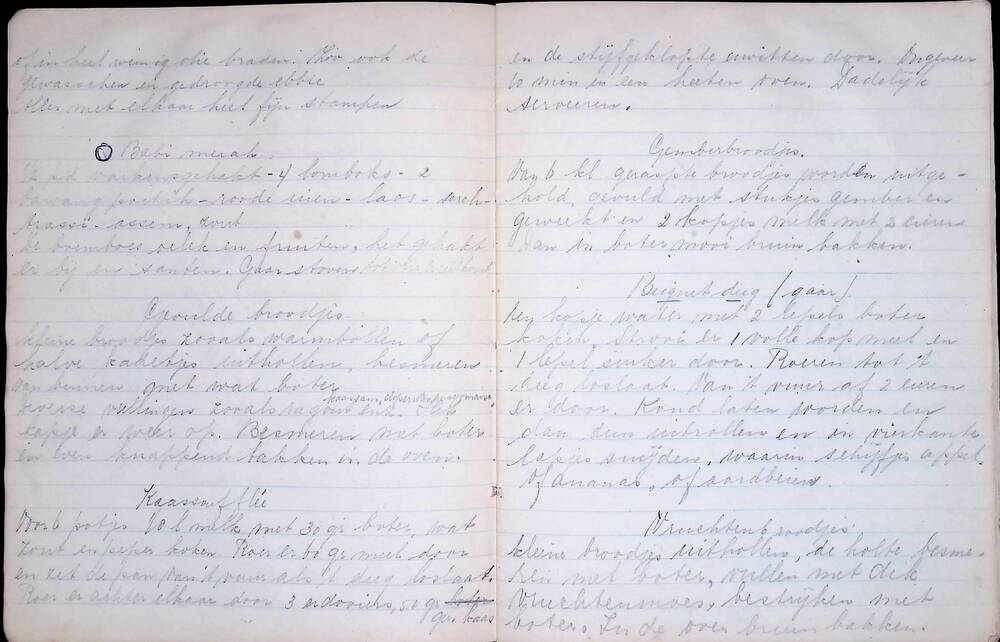 of in heel weinig olie braden. Zoo ook de
gewasschen en gedroogde ebbie
Alles met elkaar heel fijn stampen
Babi merah
½ pd varkensgehakt - 4 lomboks - 2
bawang poetih - roode uien - laos - sereh -
trassi - assem, zout
De boemboes oelek en fruiten, het gehakt
er bij en santen. Gaar stoven
Gevulde broodjes
Kleine broodjes zooals warmbollen of
halve kadetjes uithollen, besmeren
van binnen met wat boter
diverse vullingen zooals ragout enz. Het
kapje er weer op. Besmeren met boter
en even knappend bakken in de oven.
Kaassoufflée
Voor 6 potjes 1/8 l melk met 30 gr boter, wat
zout en peper koken Roer er 60 gr meel door
en zet de pan van 't vuur als 't deeg loslaat.
Roer er achter elkaar door 3 eidooiers, 50 gr boter
ger. kaas
en de stijfgeklopte eiwitten door. Ongeveer
10 min in een heeten oven. Dadelijk
serveeren.
Gemberbroodjes.
Van 6 kl geraspte broodjes worden uitge-
hold, gevuld met stukjes gember en
geweekt en 2 kopjes melk met 2 eieren
dan in boter mooi bruin bakken.
Beignet deeg (gaar)
Een kopje water met 2 lepels boter
koken, strooi er 1 volle kop meel en
1 lepel suiker door. Roeren tot 't
deeg loslaat. Van 't vuur af 2 eieren
er door. Koud laten worden en
dan dun uitrollen en in vierkante
lapjes snijden, waarin schijfjes appel
of ananas, of aardbeien.
Vruchtenbroodjes
Kleine broodjes uithollen, de holte besme-
ren met boter, vullen met dik
vruchtenmoes, bestrijken met
boter. In de oven bruin bakken.